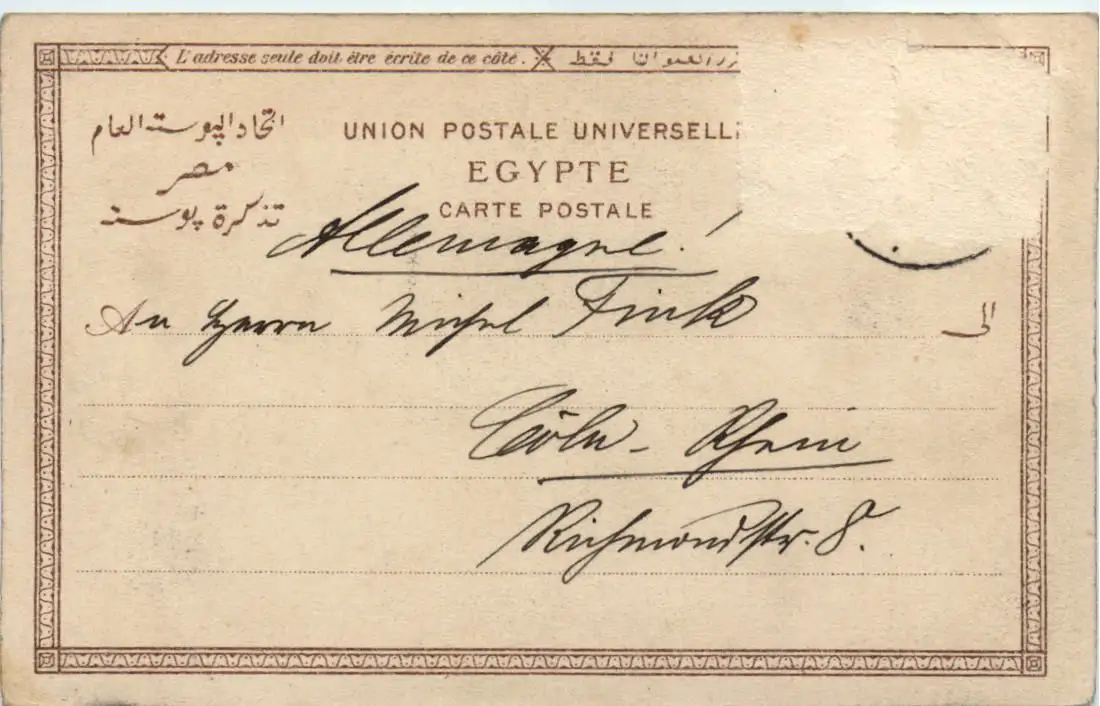 L'adresse seule doit être écrite de ce côté. العنوان فقط
اتحاد البوستة العام
UNION POSTALE UNIVERSELL
مصر
EGYPTE
تذكرة پوستة
CARTE POSTALE
Allemagne!
An Herrn Michel Fink
الى
Cöln - Rhein
Richmondstr. 8.